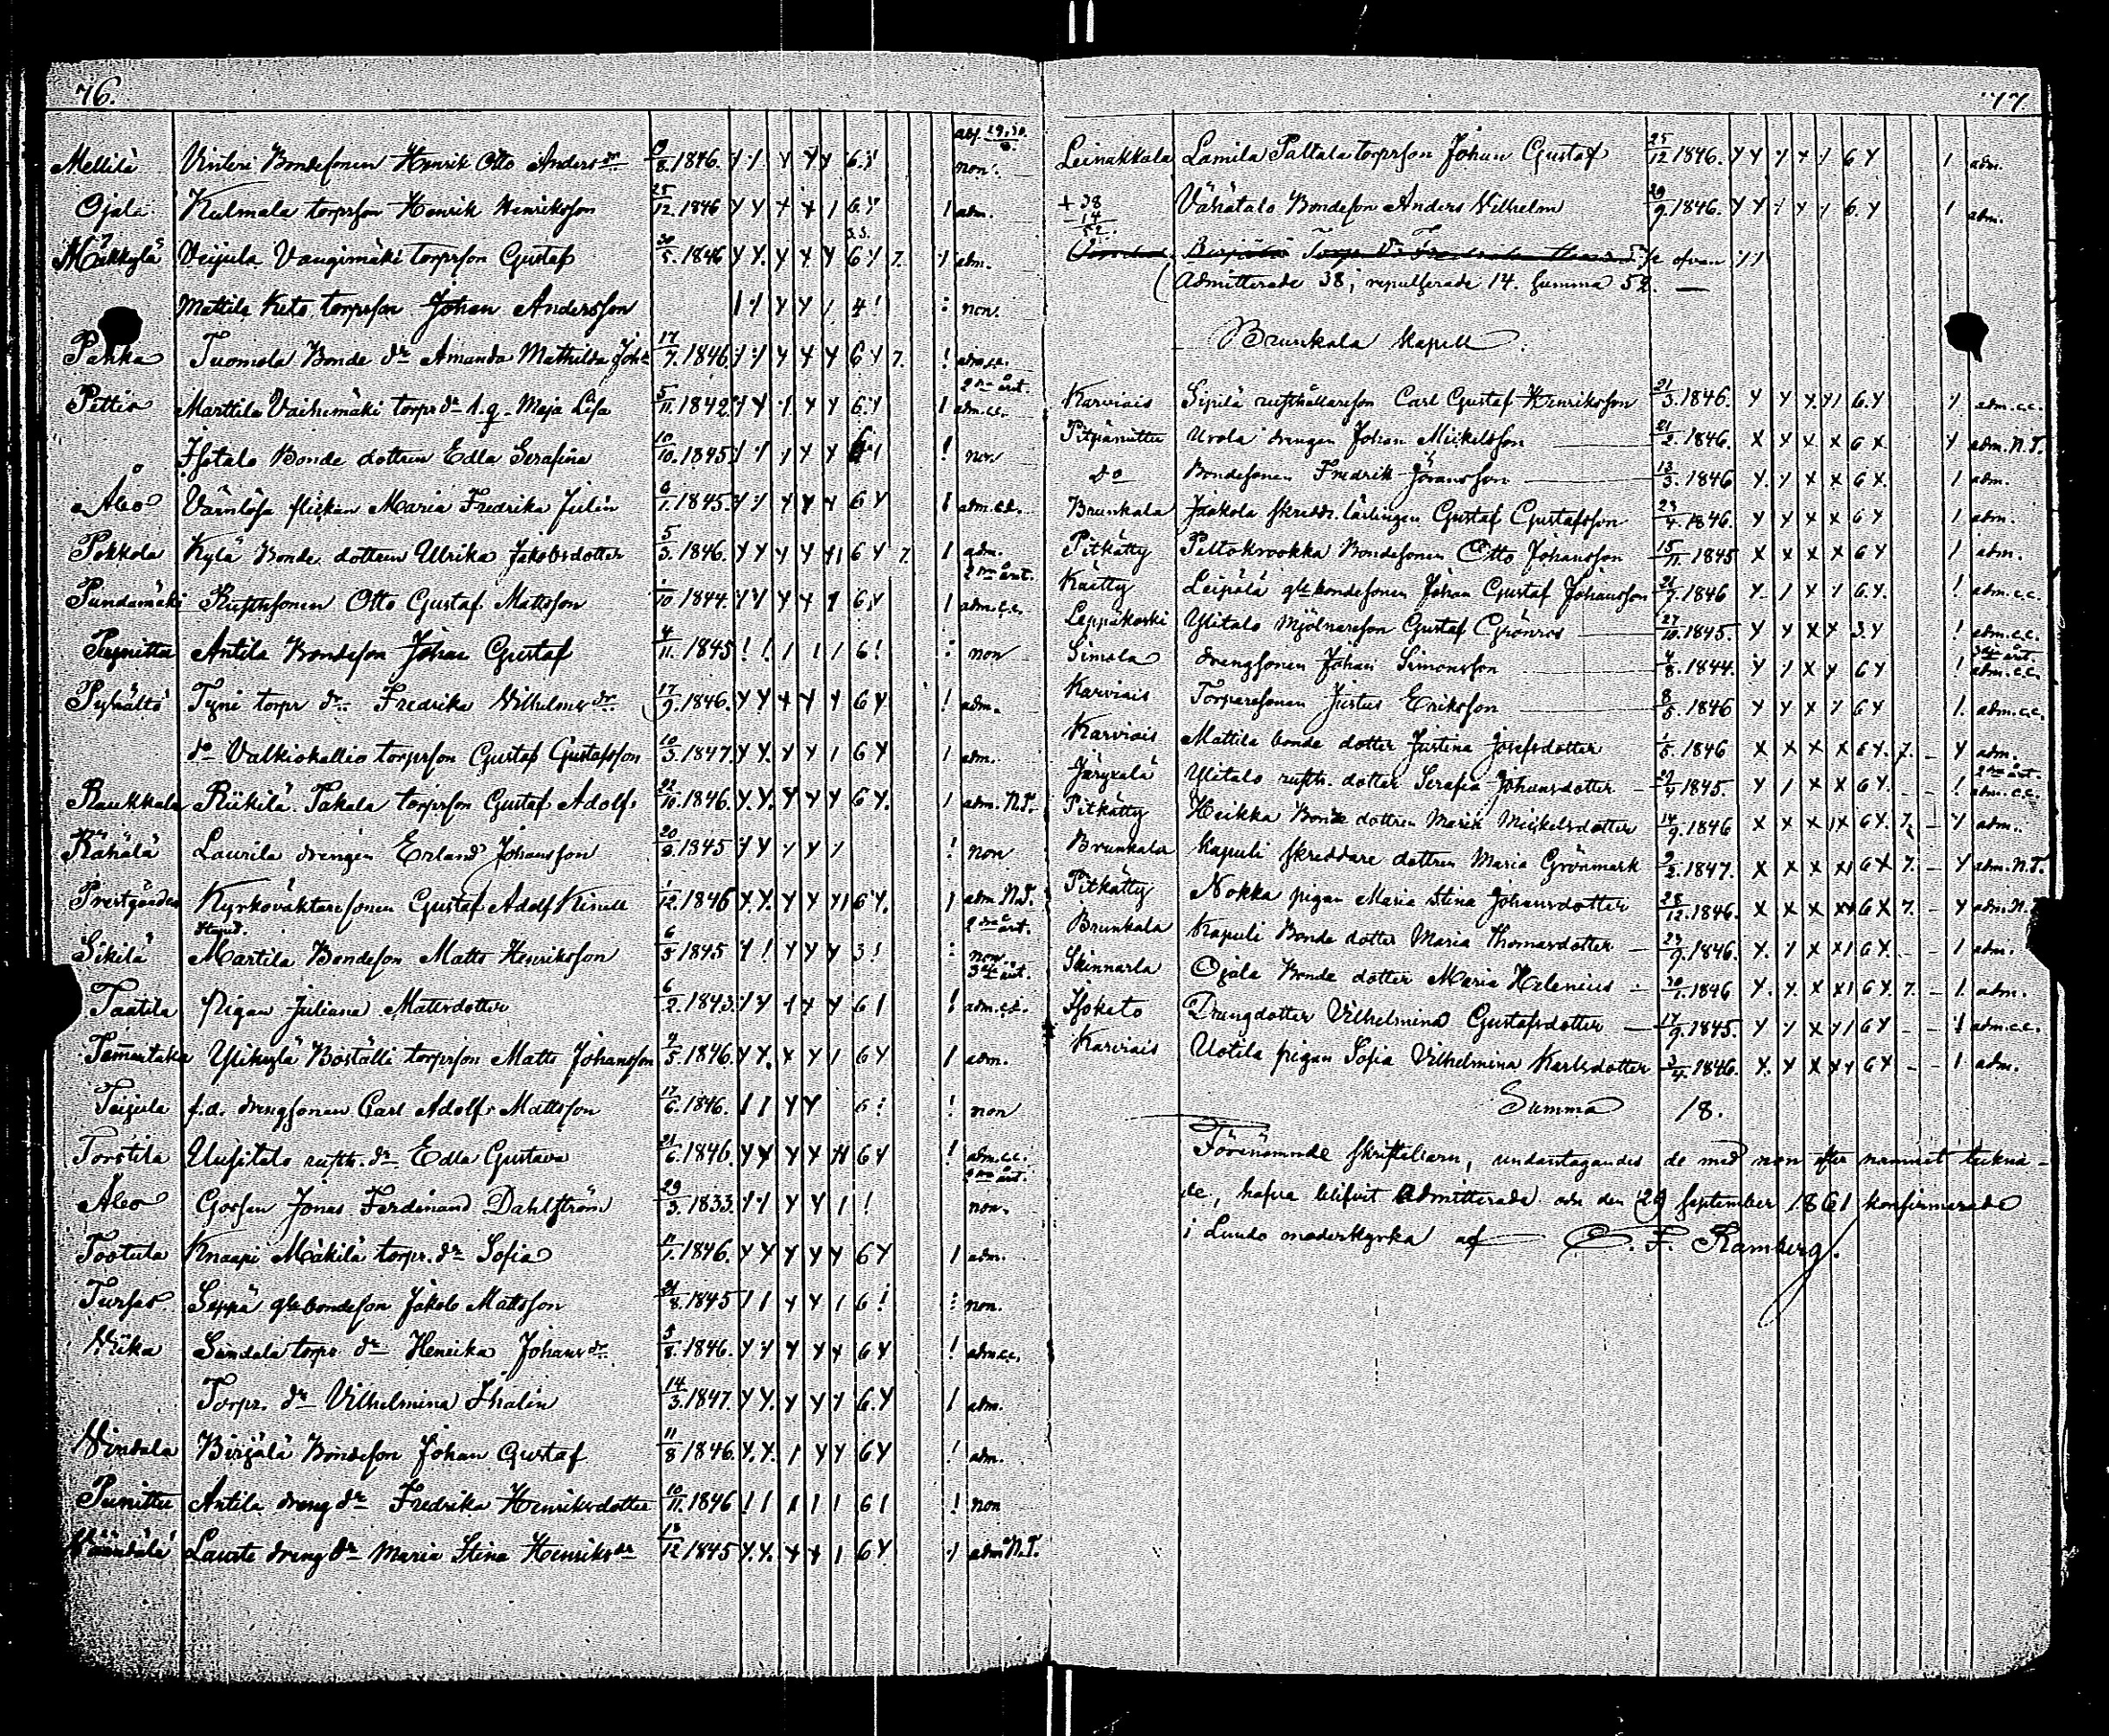 76.
abs. 29,30.
Mellilä Vinteri Bondesonen Henrik Otto Anders dr 19/8. 1846. 6. non.
Ojala Kulmala torprson Henrik Henriksson 25/12. 1846 6. adm.
Mäkkylä Veijula Vaugimäki torprson Gustaf 30/5. 1846 6 7. adm.
Mattila Keto torprson Johan Andersson 4 non.
Pahka Tuomola Bonde dr Amanda Mathilda Joh. 17/7. 1846. 6 7. adm.c.c.
2dra årt.
Pettis Marttila Vaihemäki torpr dr s.q. Maja Lisa 5/11. 1842 6. adm.c.c.
Isotalo Bonde dottren Edla Serafina 10/10. 1845 non
Åbo Värnlösa flickan Maria Fredrika Julin 6/1. 1845. 6 adm.c.c.
Pokkola Kylä Bonde dottren Ulrika Jakobsdotter 5/3. 1846. 6 7. adm.
2dra årt.
Pundamäki Rusthsonen Otto Gustaf Mattsson 1/10 1844. 6. adm.c.c.
Puunittu Antila Bondeson Johan Gustaf 4/11. 1845 6! non
Pyhältö Tyni torpr dr Fredrika Vilhelms dr 17/9. 1846. 6 adm.
do Valkiokallio torprson Gustaf Gustafsson 10/3. 1847. 6 adm.
Raukkala Riikilä Takala torprson Gustaf Adolf 22/10. 1846. 6 adm. N.T.
Rähälä Laurila drengen Erland Johansson 20/8. 1845 non
Prestgården Kyrkoväktaresonen Gustaf Adolf Kinell 1/12. 1846 6 adm N.T.
2dra årt.
Sikilä Martila Bondeson Matts Henriksson 6/5 1845 3! non.
3dje årt.
Taatila Pigan Juliana Mattsdotter 6/2. 1843. 6 adm.c.c.
Tammitaka Ylikylä Boställi torprson Matts Johansson 7/5. 1846. 6 adm.
Teijula f.d. drengsonen Carl Adolf Mattsson 17/6. 1846. 6! non
Torstila Uusitalo rusth. dr Edla Gustava 21/6. 1846. 6 adm.c.c.
2dra årt.
Åbo Gossen Jonas Ferdinand Dahlström 29/3. 1833. non.
Tootula Knaapi Mäkilä torpr. dr Sofia 11/1. 1846. 6 adm.
Tursas Seppä gle bondeson Jakob Mattsson 21/8. 1845 6! non.
Viika Sundala torpr dr Henrika Johans dr 5/8. 1846. 6 adm.c.c.
Torpr. dr Vilhelmina Thalin 14/3. 1847. 6. adm.
Vindala Birjälä Bondeson Johan Gustaf 11/8 1846. 6 adm.
Punittu Antila dreng dr Fredrika Henriksdotter 10/11. 1846 6 non
Väändälä Lauste dreng dr Maria Stina Henriks dr 13/12 1845 6 adm N.T.
77
Leinakkala Lamila Paltala torprson Johan Gustaf 25/12 1846. 6 adm.
+ 38 Vähätalo Bondeson Anders Vilhelm 29/9. 1846. 6. adm.
14
52.
Birjälä Torp. dr Fredrika se ofvan
(Admitterade 38; repulserade 14. Summa 52.
Brunkala Kapell.
Karviais Sipilä rusthållareson Carl Gustaf Henriksson 21/3. 1846. 6 adm.c.c.
Pitpänittu Urola drengen Johan Mickelsson 21/2. 1846. 6 adm. N.T.
do Bondesonen Fredrik Göransson 13/3. 1846 6 adm.
Brunkala Jaakola skreddr. lärlingen Gustaf Gustafsson 23/4. 1846. 6 adm.
Pitkätty Peltokrookka Bondesonen Otto Johansson 15/11. 1845 6 adm.
Käetty Leipälä gle bondesonen Johan Gustaf Johansson 21/7. 1846 6. adm.c.c.
Leppäkoski Ylitalo Mjölnareson Gustaf Grönros 27/10. 1845. 3. adm.c.c.
3dje årt.
Simola drengsonen Johan Simonsson 4/8. 1844. 6 adm.c.c.
Karviais Torparesonen Justus Eriksson 8/5. 1846 6 adm.c.c.
Karviais Mattila bonde dotter Justina Josefsdotter 1/5. 1846 6. 7. adm.
2dra årt.
Järyxälä Ylitalo rusth. dotter Serafia Johansdotter 29/4 1845. 6 adm.c.c.
Pitkätty Heikka Bonde dottren Maria Mickelsdotter 14/9. 1846 6 7. adm.
Brunkala Kapuli skreddare dottren Maria Grönmark 9/2. 1847. 6 7. adm. N.T.
Pitkätty Nokka pigan Maria Stina Johansdotter 28/12. 1846. 6 7. adm. N.
Brunkala Kapuli Bonde dotter Maria Thomasdotter 23/9. 1846. 6 adm.
Skinnarla Ojala Bonde dotter Maria Helenius 20/1. 1846 6 7. adm.
Isoketo Drengdotter Vilhelmina Gustafsdotter 17/9. 1845. 6 adm.c.c.
Karviais Uotila pigan Sofia Vilhelmina Karlsdotter 3/4. 1846. 6 adm.
Summa 18.
Förenämnde skriftebarn, undantagandes de med non efter namnet teckna-
de, hafva blifvit admitterade och den 29 September 1861 konfirmerade
i Lundo moderkyrka af C. F. Ramberg.